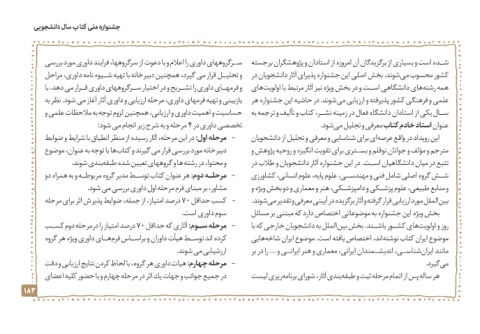 جشنواره ملی کتاب سال دانشجویی
شده است و بسیاری از برگزیدگان آن امروزه از استادان و پژوهشگران برجسته
کشور محسوب می‌شوند. بخش اصلی این جشنواره پذیرای آثار دانشجویان در
همه رشته‌های دانشگاهی است و در بخش ویژه نیز آثار مرتبط با اولویت‌های
علمی و فرهنگی کشور پذیرفته و ارزیابی می‌شوند. در حاشیه این جشنواره هر
سال یکی از استادان دانشگاه فعال در زمینه نشر، کتاب و تألیف و ترجمه به
عنوان استاد خادم کتاب معرفی و تجلیل می‌شود.
این رویداد در واقع عرصه‌ای برای شناسایی و معرفی و تجلیل از دانشجویان
مترجم و مؤلف و جوانان نوقلم و بستری برای تقویت انگیزه و روحیه پژوهش و
تتبع در میان دانشگاهیان است. در این جشنواره آثار دانشجویان و طلاب در
شش گروه اصلی شامل فنی و مهندسی، علوم پایه، علوم انسانی، کشاورزی
و منابع طبیعی، علوم پزشکی و دامپزشکی، هنر و معماری و دو بخش ویژه و
بین‌الملل مورد ارزیابی قرار گرفته و آثار برگزیده در آیینی معرفی و تقدیر می‌شوند.
بخش ویژه این جشنواره به موضوعاتی اختصاص دارد که مبتنی بر مسائل
روز و اولویت‌های کشور باشند. بخش بین‌الملل به دانشجویان خارجی که با
موضوع ایران کتاب نوشته‌اند، اختصاص یافته است. موضوع ایران شاخه‌هایی
مانند ایران‌شناسی، اندیشمندان ایرانی، معماری و هنر ایرانی و... را در بر
می‌گیرد.
هر ساله پس از اتمام مرحله ثبت و طبقه‌بندی آثار، شورای برنامه‌ریزی لیست
سرگروههای داوری را اعلام و با دعوت از سرگروهها، فرایند داوری مورد بررسی
و تحلیل قرار می گیرد، همچنین دبیرخانه با تهیه شیوه نامه داوری، مراحل
و فرمهای داوری را تشریح و در اختیار سرگروههای داوری قرار می دهد. با
بازبینی و تهیه فرمهای داوری، مرحله ارزیابی و داوری آثار آغاز می شود. نظر به
حساسیت و اهمیت داوری و ارزیابی، همچنین لزوم توجه به ملاحظات علمی و
تخصصی داوری در ۴ مرحله و به شرح زیر انجام می‌شود:
- مرحله اول: در این مرحله، آثار رسیده از منظر انطباق با شرایط و ضوابط
دبیرخانه مورد بررسی قرار می گیرند و کتاب‌ها با توجه به عنوان، موضوع
و محتوا، در رشته ها و گروههای تعیین شده طبقه‌بندی شوند.
- مرحله دوم: هر عنوان کتاب توسط مدیر گروه مربوطه و به همراه دو
مشاور، بر مبنای فرم مرحله اول داوری بررسی می شود.
- کسب حداقل ۷۰ درصد امتیاز، از جمله، ضوابط پذیرش اثر برای مرحله
سوم داوری است.
- مرحله سوم: آثاری که حداقل ۷۰ درصد امتیاز را در مرحله دوم کسب
کرده اند توسط هیأت داوران و براساس فرم‌های داوری ویژه هر گروه
ارزشیابی می‌شوند.
- مرحله چهارم: هیات داوری هر گروه، با لحاظ کردن نتایج ارزیابی و دقت
در جمیع جوانب و جهات یك اثر در مرحله چهارم و با حضور کلیه اعضای
۱۸۳